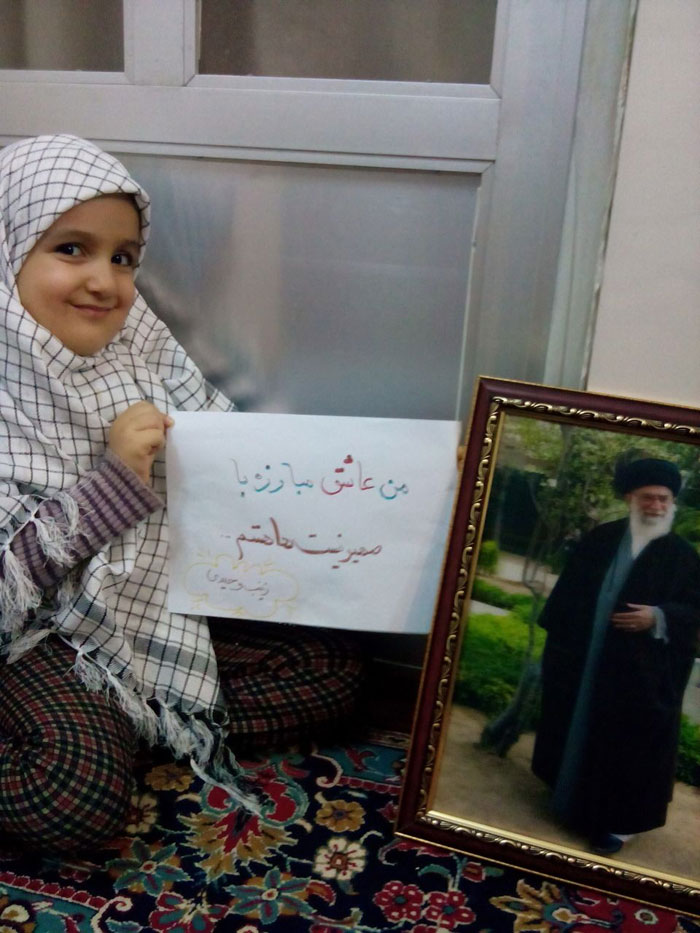 من عاشق مبارزه با
صهیونیست ها هستم ..
زینب وحیدی